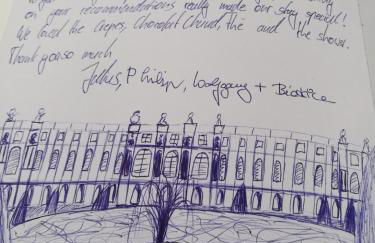 on your recommendations really made our stay special!
We loved the Crepes, Chocolat Chaud, the and the shows.
Thank you so much
Philip, Wolfgang + Beatrice